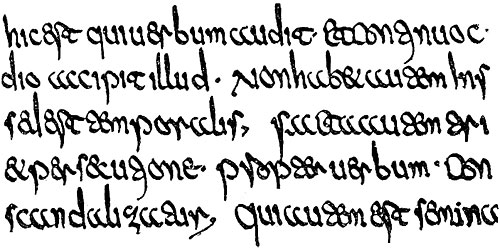 hic est qui uerbum audit · et continuo c ·
dio accipit illud · Non habet autem in s
sed est temporalis, facta autem tri
et persecutione · propter uerbum · Con
scandalizatur, Qui autem est semina